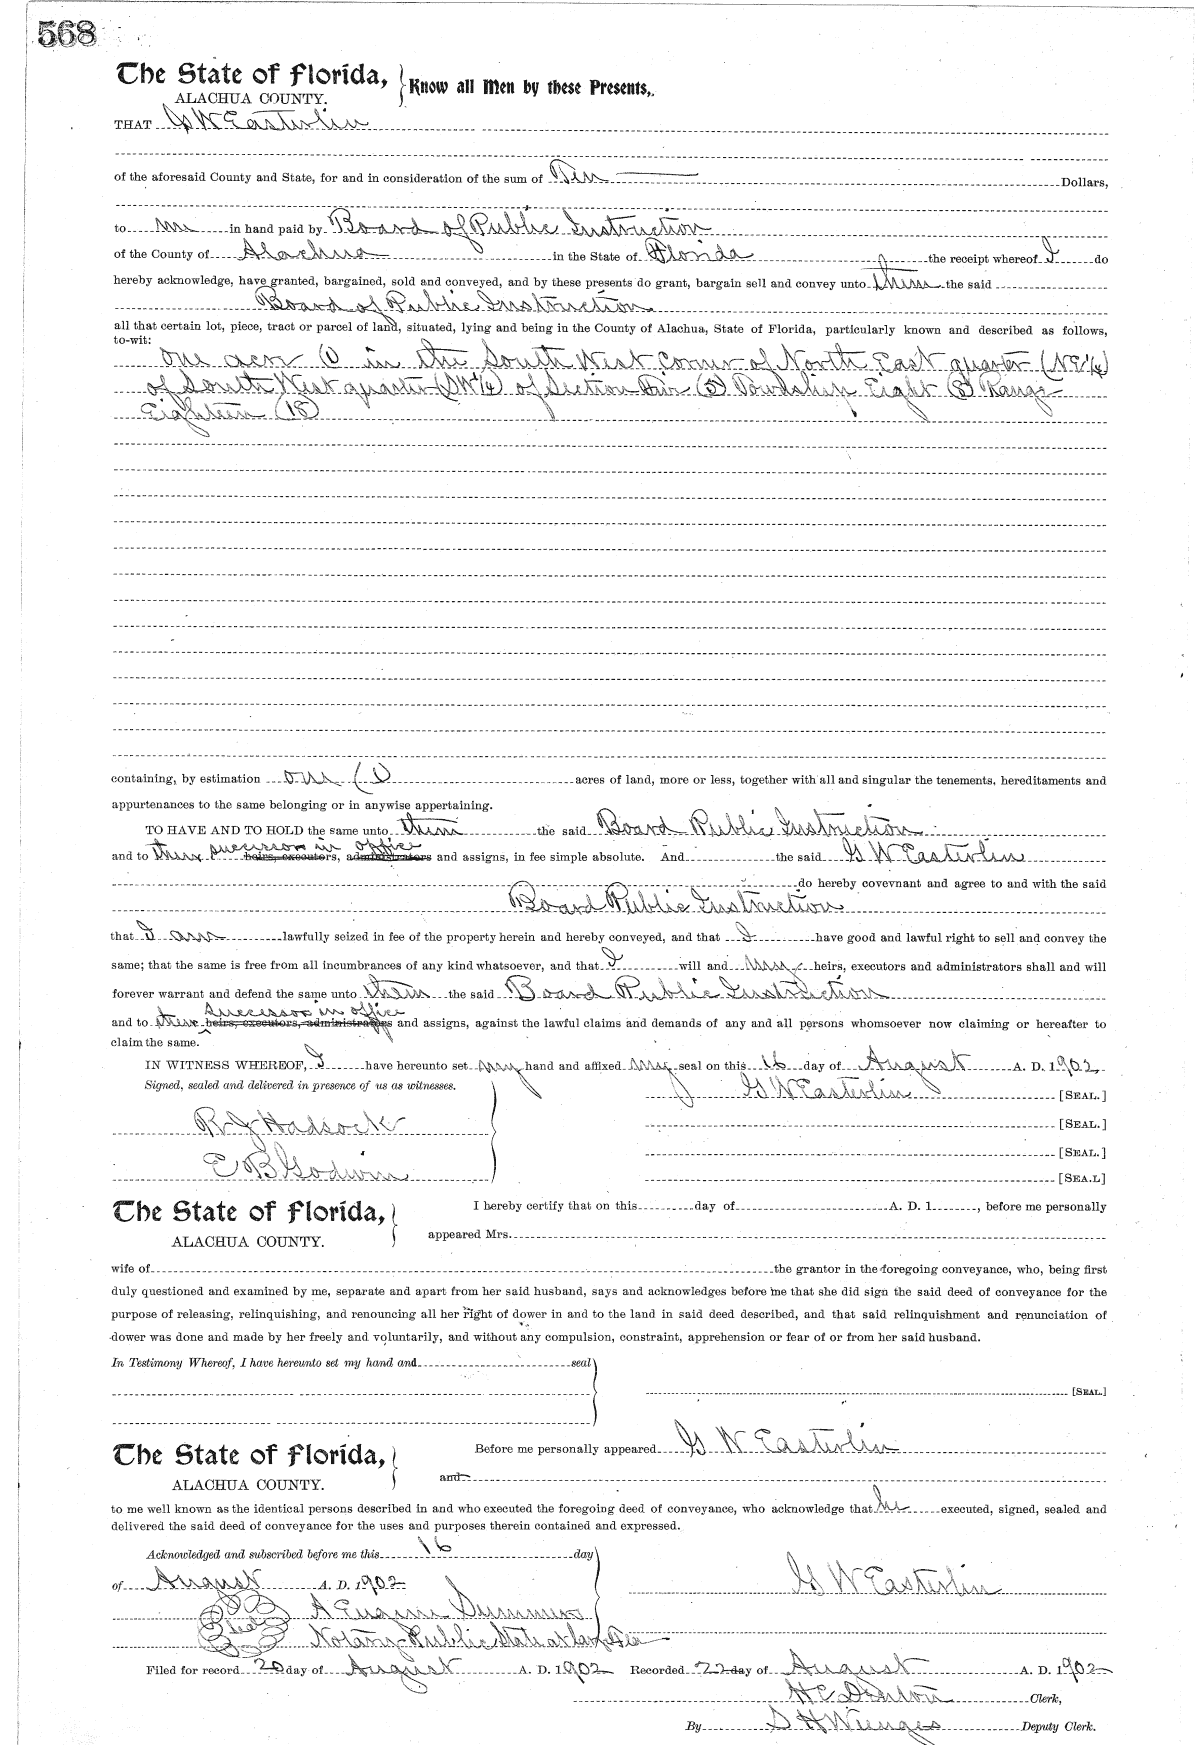 568
The State of Florida,
ALACHUA COUNTY.
Know all Men by these Presents,
THAT G W Easterlin
of the aforesaid County and State, for and in consideration of the sum of Ten Dollars,
to me in hand paid by Board of Public Instruction
of the County of Alachua in the State of Florida the receipt whereof I do
hereby acknowledge, have granted, bargained, sold and conveyed, and by these presents do grant, bargain sell and convey unto them the said
Board of Public Instruction
all that certain lot, piece, tract or parcel of land, situated, lying and being in the County of Alachua, State of Florida, particularly known and described as follows,
to-wit:
One acre (1) in the South West Corner of North East quarter (NE 1/4)
of South West quarter (SW 1/4) of Section Five (5) Township Eight (8) Range
Eighteen (18)
containing, by estimation one (1) acres of land, more or less, together with all and singular the tenements, hereditaments and
appurtenances to the same belonging or in anywise appertaining.
TO HAVE AND TO HOLD the same unto them the said Board Public Instruction
successors in office
and to their heirs, executors, administrators and assigns, in fee simple absolute. And the said G W Easterlin
do hereby covevnant and agree to and with the said
Board Public Instruction
that I am lawfully seized in fee of the property herein and hereby conveyed, and that I have good and lawful right to sell and convey the
same; that the same is free from all incumbrances of any kind whatsoever, and that I will and my heirs, executors and administrators shall and will
forever warrant and defend the same unto them the said Board Public Instruction
Successors in office
and to their heirs, executors, administrators and assigns, against the lawful claims and demands of any and all persons whomsoever now claiming or hereafter to
claim the same.
IN WITNESS WHEREOF, I have hereunto set my hand and affixed my seal on this 16 day of August A. D. 1902
Signed, sealed and delivered in presence of us as witnesses.
G W Easterlin [SEAL.]
R J Hadsock [SEAL.]
[SEAL.]
E B Godwin [SEA.L]
The State of Florida,
ALACHUA COUNTY.
I hereby certify that on this day of A. D. 1 , before me personally
appeared Mrs.
wife of the grantor in the foregoing conveyance, who, being first
duly questioned and examined by me, separate and apart from her said husband, says and acknowledges before me that she did sign the said deed of conveyance for the
purpose of releasing, relinquishing, and renouncing all her right of dower in and to the land in said deed described, and that said relinquishment and renunciation of
dower was done and made by her freely and voluntarily, and without any compulsion, constraint, apprehension or fear of or from her said husband.
In Testimony Whereof, I have hereunto set my hand and seal
[SEAL.]
The State of Florida,
ALACHUA COUNTY.
Before me personally appeared G W Easterlin
and
to me well known as the identical persons described in and who executed the foregoing deed of conveyance, who acknowledge that he executed, signed, sealed and
delivered the said deed of conveyance for the uses and purposes therein contained and expressed.
Acknowledged and subscribed before me this 16 day
of August A. D. 1902
G W Easterlin
Seal
A Eugene Summers
Notary Public State at large Fla
Filed for record 20 day of August A. D. 1902 Recorded 22 day of August A. D. 1902
H C Denton Clerk,
By S H Wienges Deputy Clerk.